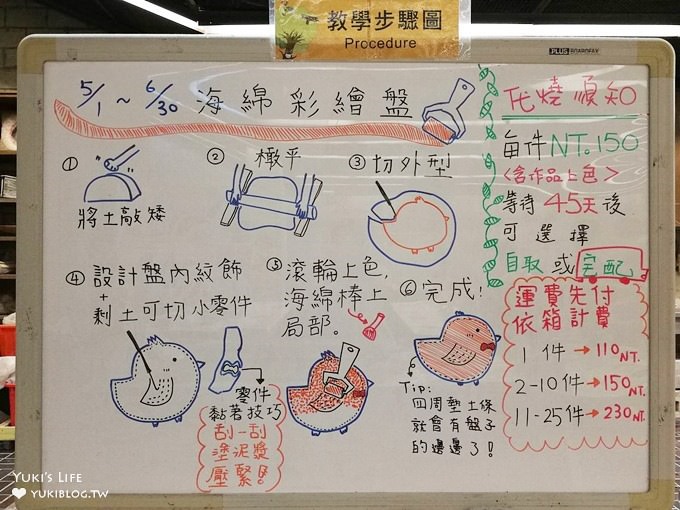 教學步驟圖
Procedure
PLUS BOARDFAX
5/1 ~ 6/30 海綿彩繪盤
① 將土敲矮
② 橄平
③ 切外型
④ 設計盤內紋飾
+
剩土可切小零件
零件
黏著技巧
刮一刮
塗泥漿
壓緊!
⑤ 滾輪上色,
海綿棒上
局部。
⑥ 完成!
Tip:
四周墊土條
就會有盤子
的邊邊了!
代燒須知
每件NT.150
<含作品上色>
等待45天後
可選擇
自取或宅配
運費先付
依箱計費
1件→110NT.
2-10件→150NT.
11-25件→230NT.
YUKI'S LIFE
YUKIBLOG.TW